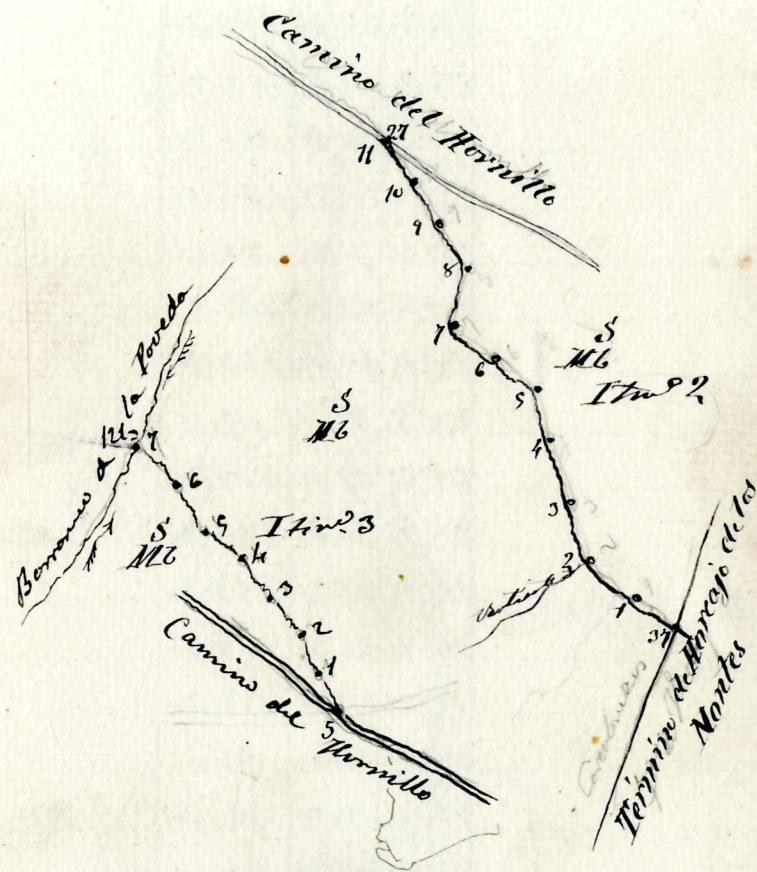 Camino del Hornillo
27
11
10
9
8
7
6
5
4
3
2
1
37
S
Mb
Itin.º 2
S
Mb
Barranco de la Poveda
7
6
5
4
3
2
1
5
S
Mb
Itin.º 3
Camino del Hornillo
Término de Horcajo de los
Montes